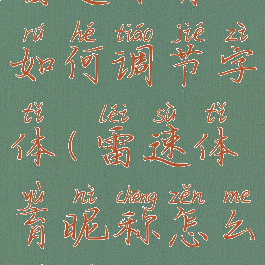 rú hé tiáo jié zì
如何调节字
tǐ léi sù tǐ
体(雷速体
yù nì chēng zěn me
育昵称怎么